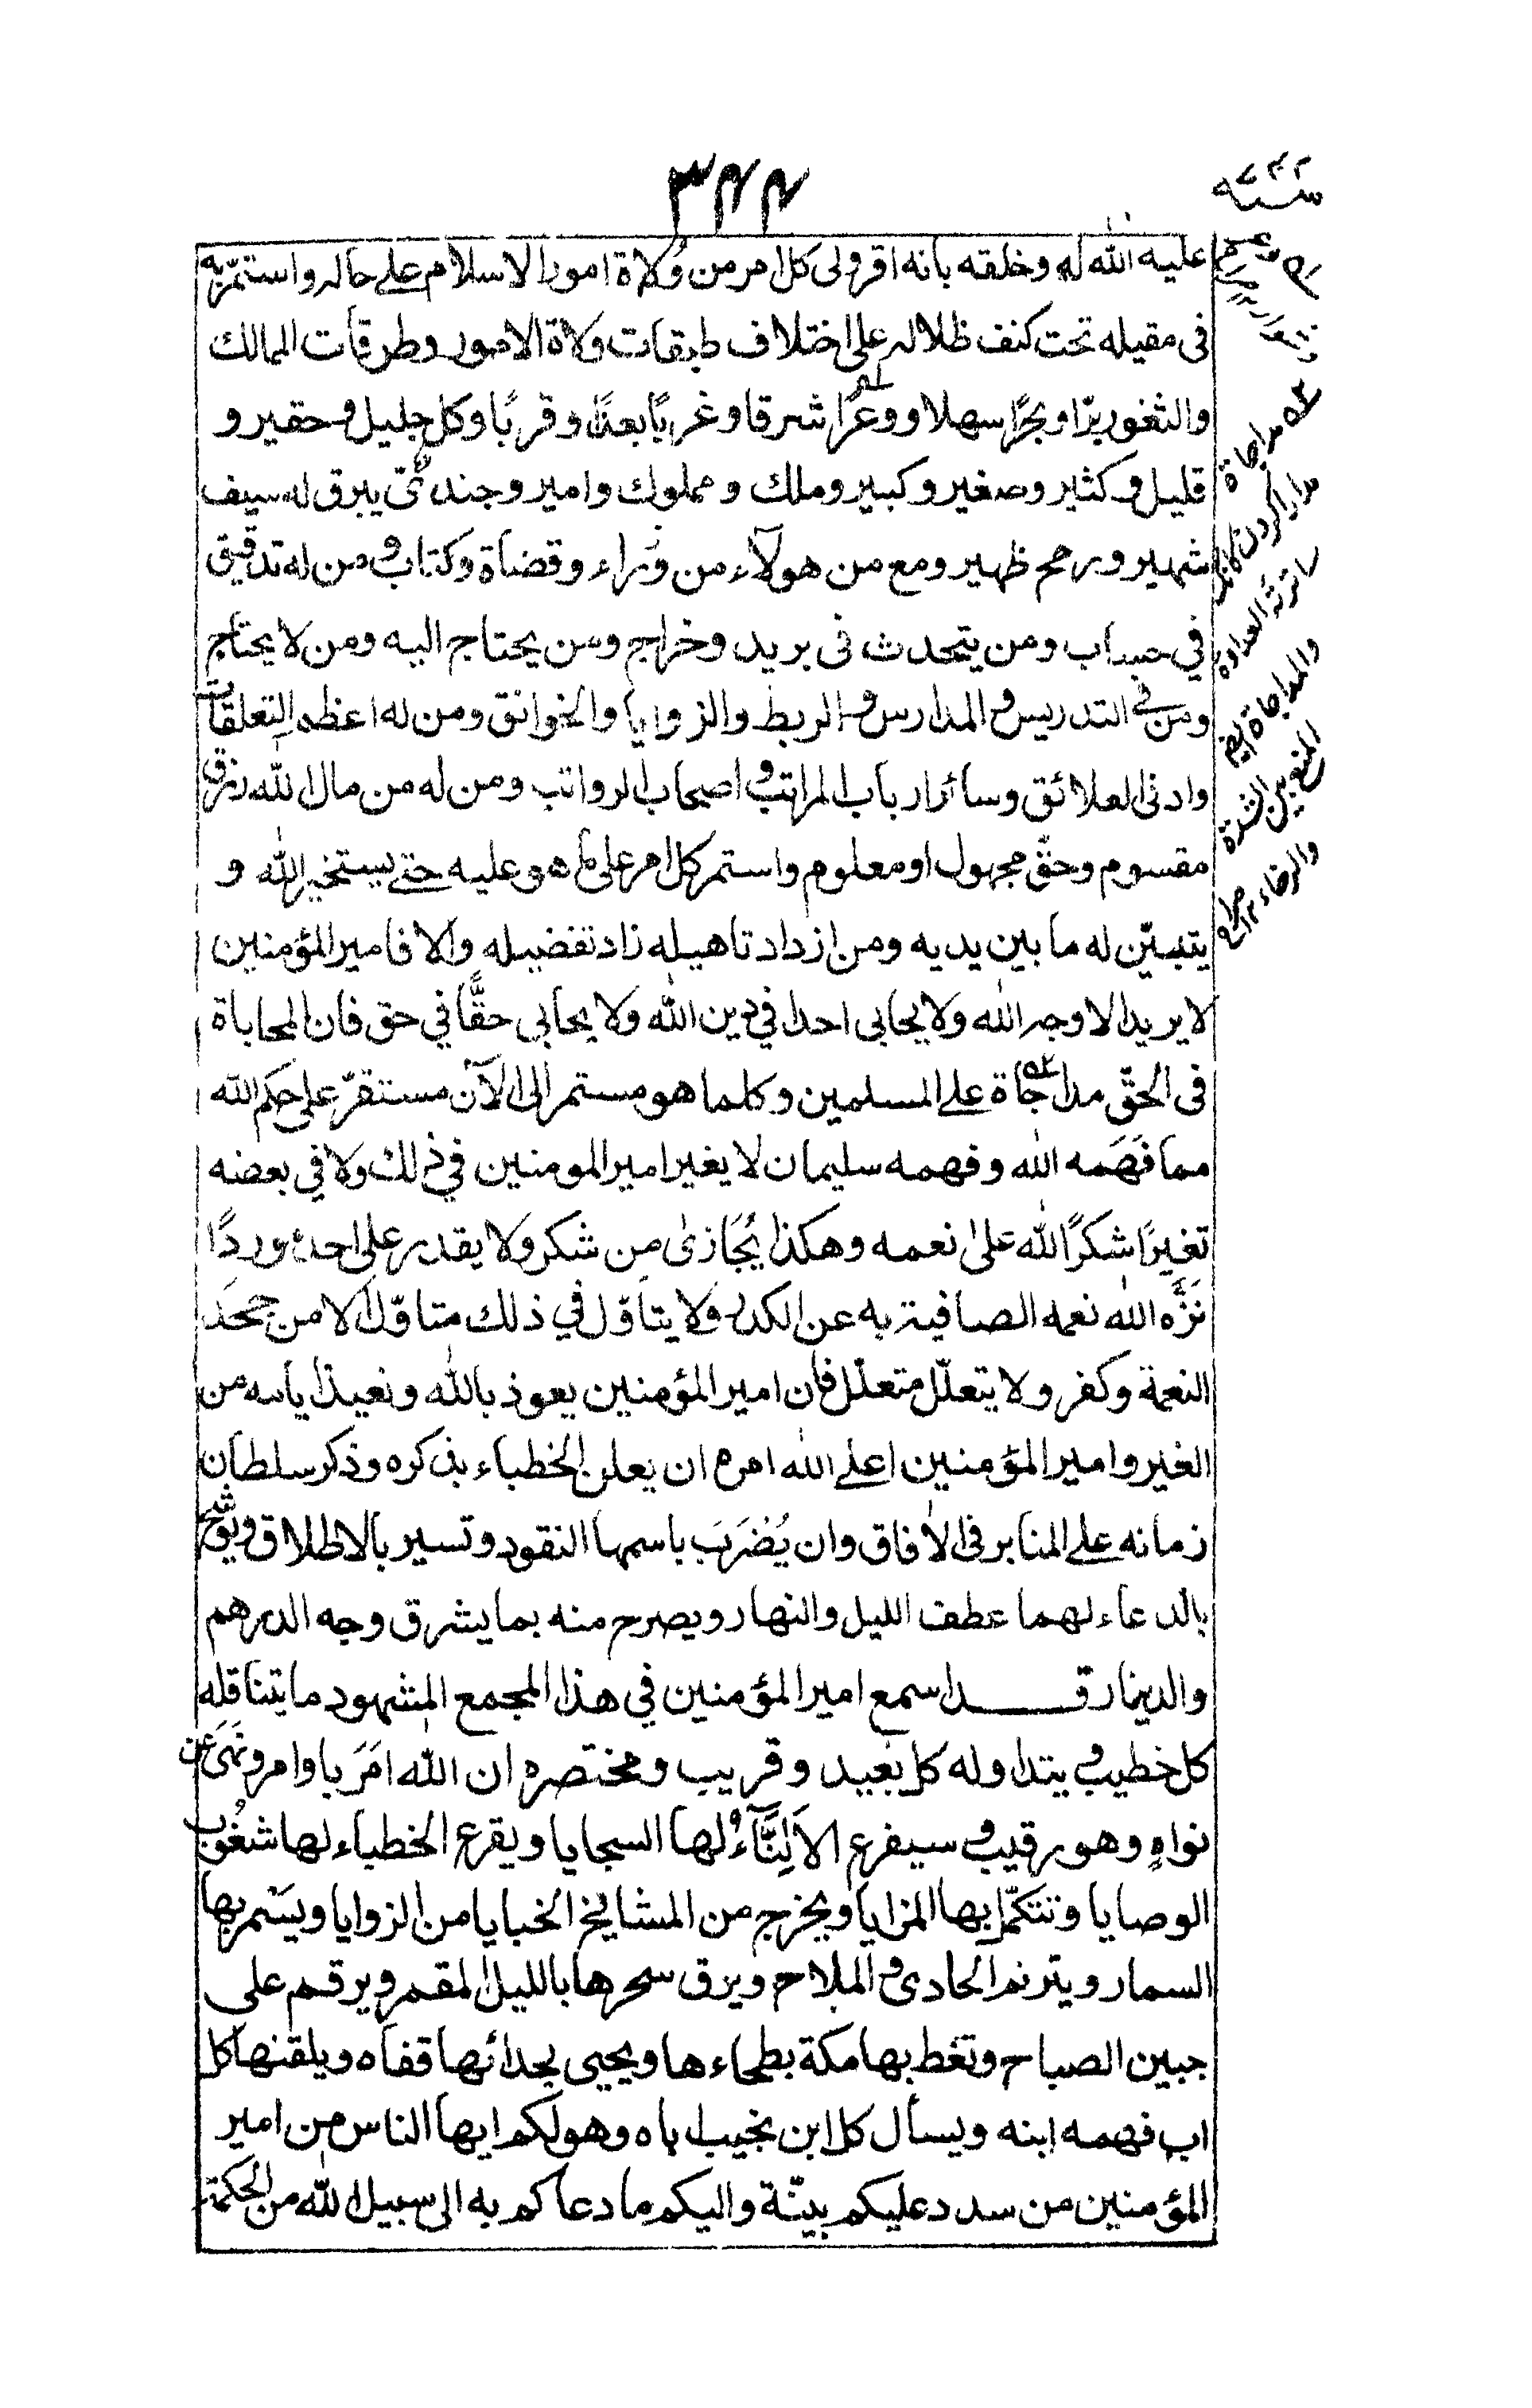 ٣٤٤
سنه ٧٤٢
عليه الله له وخلقه بانه اقر ولى كل امر من وُلاة امور الاسلام على حاله واستمرّ به
فى مقيله تحت كنف ظلاله على اختلاف طبقات ولاة الامور وطرقات الممالك
والثغور برّا وبحرًا سهلا ووعرًا شرقا وغربًا بعدًا وقربًا وكل جليل وحقير و
قليل وكثير وصغير وكبير وملك ومملوك وامير وجندىّ يبرق له سيف
شهير ورمح ظهير ومع من هولآء من وزراء وقضاة وكتاب ومن له تدقيق
في حساب ومن يتحدث فى بريد وخراج ومن يحتاج اليه ومن لا يحتاج
ومن في التدريس والمدارس والربط والزوايا والخوانق ومن له اعظم التعلقات
وادنى العلائق وسائر ارباب المراتب واصحاب الرواتب ومن له من مال الله رزق
مقسوم وحقّ مجهول او معلوم واستمر كل امر على ما هو عليه حتى يستخير الله و
يتبيّن له ما بين يديه ومن ازداد تاهيله زاد تفضيله والا فامير المؤمنين
لا يريد الا وجه الله ولا يحابى احدا في دين الله ولا يحابي حقًّا في حق فان المحاباة
فى الحقّ مداجاة على المسلمين وكلما هو مستمر الى الآن مستقرّ على حكم الله
مما فَهَمه الله وفهمه سليمان لا يغير امير المومنين في ذلك ولا في بعضه
تغيرًا شكرًا لله على نعمه وهكذا يُجَازىٰ من شكر ولا يقدر على احد موردًا
نَزَّه الله نعمه الصافية به عن الكدر ولا يتاوّل في ذلك متاوّل الا من جحَدَ
النعمة وكفر ولا يتعلّل متعلّل فان امير المؤمنين يعوذ بالله ونعيذ ايامه من
الغير وامير المؤمنين اعلى الله امره ان يعلن الخطباء بذكره وذكر سلطان
زمانه على المنابر فى الافاق وان يُضرَبَ باسمها النقود وتسير بالاطلاق ويوشح
بالدعاء لهما عطف الليل والنهار ويصرح منه بما يشرق وجه الدرهم
والدينار قد اسمع امير المؤمنين في هذا المجمع المشهود ما يتناقله
كل خطيب ويتداوله كل بعيد وقريب ومختصره ان الله امَرَ باوامر ونَهَىٰ عن
نواهٍ وهو رقيب وسيفرع الاَلِبَّآءُ لها السجايا ويقرع الخطباء لها شعُوب
الوصايا وتتكمّل بها المزايا ويخرج من المشايخ الخبايا من الزوايا ويسمر بها
السمار ويترنم الحادى والملاح ويرق سحرها بالليل المقمر ويرقم على
جبين الصباح وتغط بها مكة بطحاءها ويحيى بحدائها قفاه ويلقنها كل
اب فهمه ابنه ويسأل كل ابن نجيب اباه وهو لكم ايها الناس من امير
المؤمنين من سدد عليكم بيّنة واليكم ما دعاكم به الى سبيل الله من الحكمة
مداجاة
مدارا كردن
العداوة
والمداجاة ايضا
المنع بين الشدة
والرخاء ١٢ صراح